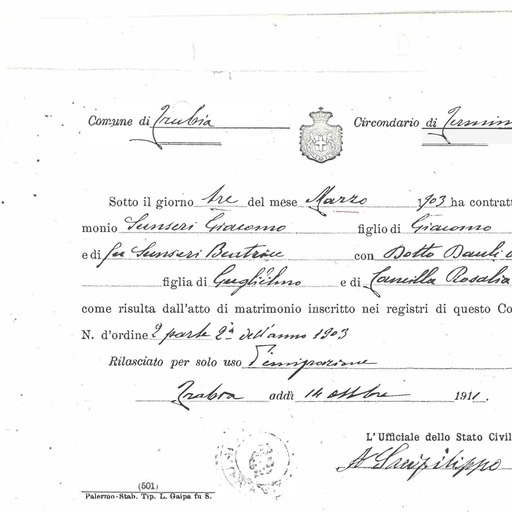 Comune di Trabia Circondario di Termin
Sotto il giorno tre del mese Marzo 1903 ha contratt
monio Sunseri Giacomo figlio di Giacomo
e di fu Sunseri Beatrice con Dotto Dauli
figlia di Guglielmo e di Cancilla Rosalia
come risulta dall'atto di matrimonio inscritto nei registri di questo Co
N. d'ordine 2 parte 2ª dell'anno 1903
Rilasciato per solo uso d'emigrazione
Trabia addì 14 ottobre 1911.
L'Ufficiale dello Stato Civil
(501)
Palermo-Stab. Tip. L. Gaipa fu S.